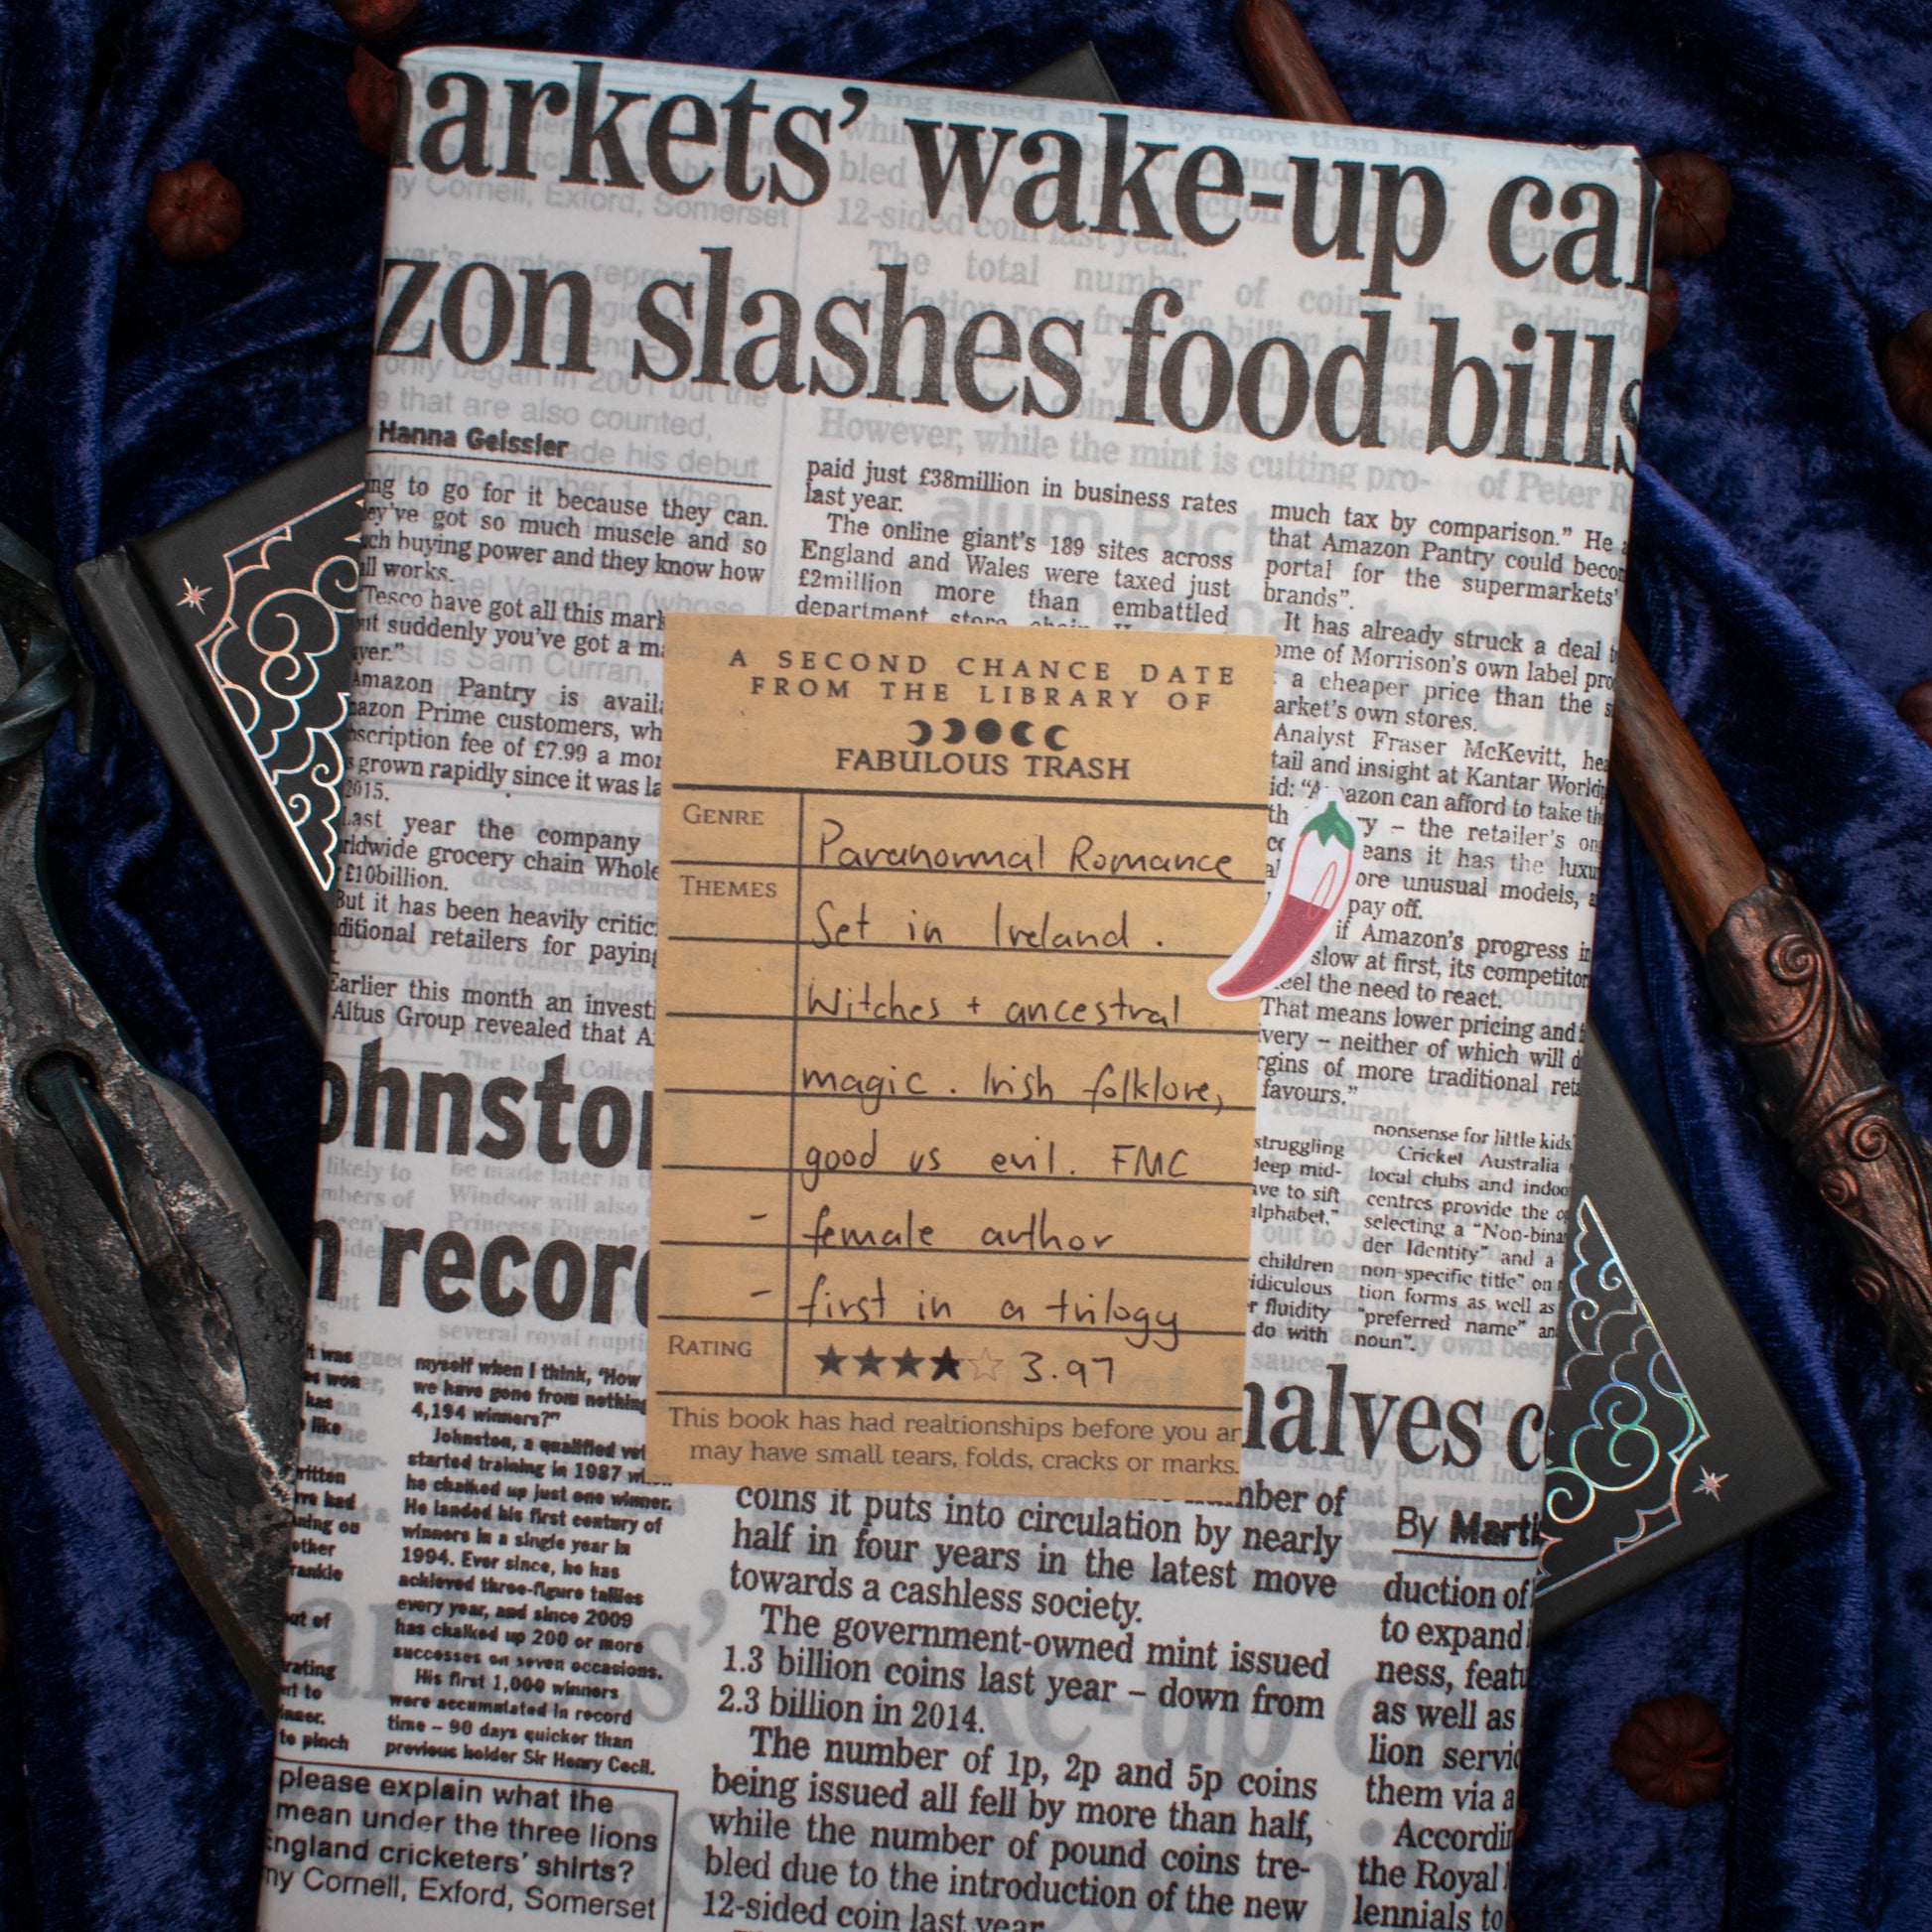 arkets' wake-up cal
zon slashes food bills
Hanna Geissler
ng to go for it because they can.
ey've got so much muscle and so
ch buying power and they know how
all works.
"Tesco have got all this mark
ut suddenly you've got a ma
yer."
Amazon Pantry is availa
azon Prime customers, wh
bscription fee of £7.99 a mo
s grown rapidly since it was la
2015.
Last year the company
rldwide grocery chain Whole
£10billion.
But it has been heavily critic
ditional retailers for paying
Earlier this month an investi
Altus Group revealed that A
paid just £38million in business rates
last year.
The online giant's 189 sites across
England and Wales were taxed just
£2million more than embattled
department store chain
much tax by comparison." He
that Amazon Pantry could becom
portal for the supermarkets'
brands".
It has already struck a deal t
ome of Morrison's own label pro
a cheaper price than the s
arket's own stores.
Analyst Fraser McKevitt, hea
tail and insight at Kantar Worldp
id: "Amazon can afford to take th
y – the retailer's on
eans it has the luxu
ore unusual models, a
pay off.
if Amazon's progress i
slow at first, its competitor
eel the need to react.
That means lower pricing and
very – neither of which will d
rgins of more traditional reta
favours."
A SECOND CHANCE DATE
FROM THE LIBRARY OF
FABULOUS TRASH
GENRE
Paranormal Romance
THEMES
Set in Ireland.
Witches + ancestral
magic. Irish folklore,
good vs evil. FMC
- female author
- first in a trilogy
RATING
★★★★☆ 3.97
This book has had realtionships before you an
may have small tears, folds, cracks or marks.
ohnsto
n recor
struggling
deep mid-
ave to sift
alphabet,"
children
ridiculous
r fluidity
do with
nonsense for little kids.
Cricket Australia
local clubs and indoo
centres provide the o
selecting a "Non-bina
der Identity" and a
non-specific title" on
tion forms as well as
"preferred name" an
noun".
halves c
t was
as won
has
like
ritten
ning on
other
rankie
out of
rating
nt to
inner.
to pinch
myself when I think, 'How
we have gone from nothing
4,194 winners?"
Johnston, a qualified vet
started training in 1987 w
he chalked up just one winner.
He landed his first century of
winners in a single year in
1994. Ever since, he has
achieved three-figure tallies
every year, and since 2009
has chalked up 200 or more
successes on seven occasions.
His first 1,000 winners
were accumulated in record
time – 90 days quicker than
previous holder Sir Henry Cecil.
please explain what the
mean under the three lions
England cricketers' shirts?
ny Cornell, Exford, Somerset
mber of
coins it puts into circulation by nearly
half in four years in the latest move
towards a cashless society.
The government-owned mint issued
1.3 billion coins last year – down from
2.3 billion in 2014.
The number of 1p, 2p and 5p coins
being issued all fell by more than half,
while the number of pound coins tre-
bled due to the introduction of the new
12-sided coin last year.
By Marti
duction of
to expand
ness, featu
as well as
lion servic
them via a
Accordin
the Royal
lennials to